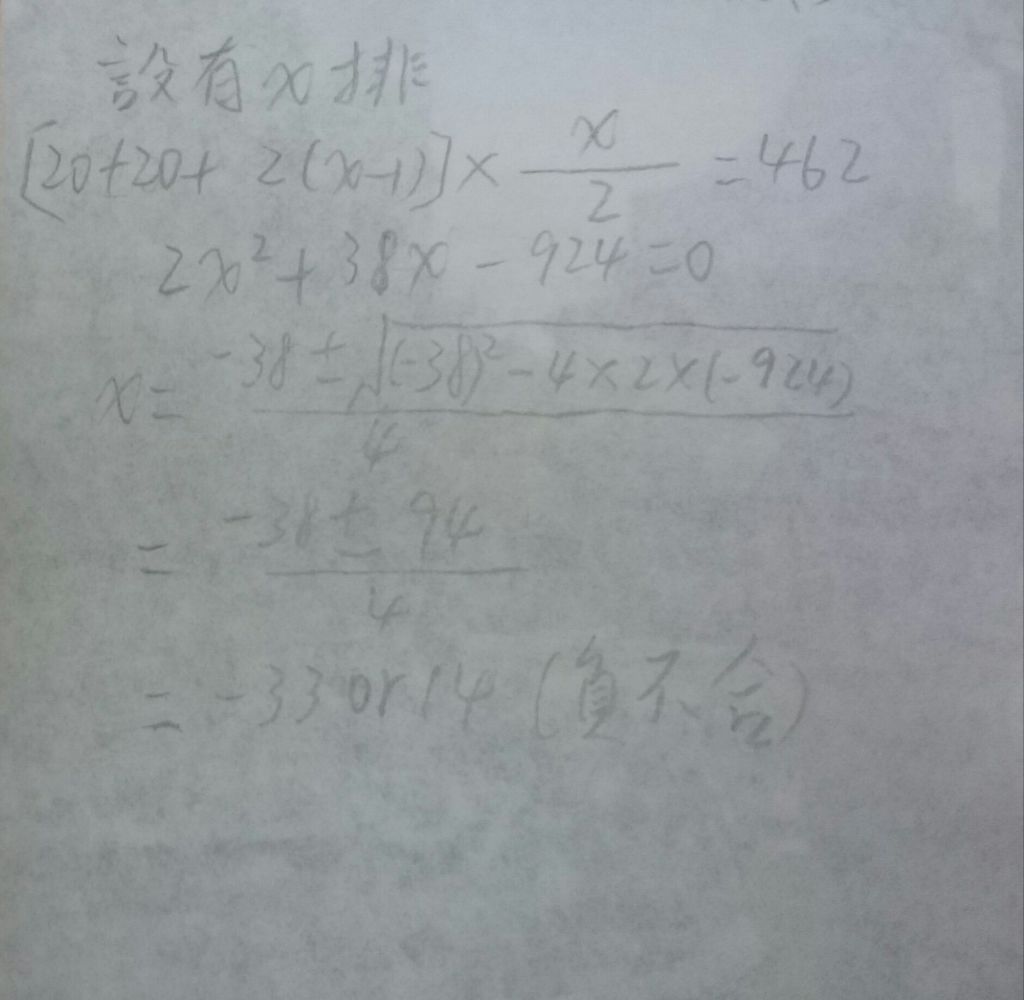 設有x排
[20+20+ 2(x-1)]× x/2 =462
2x²+38x-924=0
x= (-38±√((-38)²-4×2×(-924)))/4
= (-38±94)/4
= -33 or 14 (負不合)